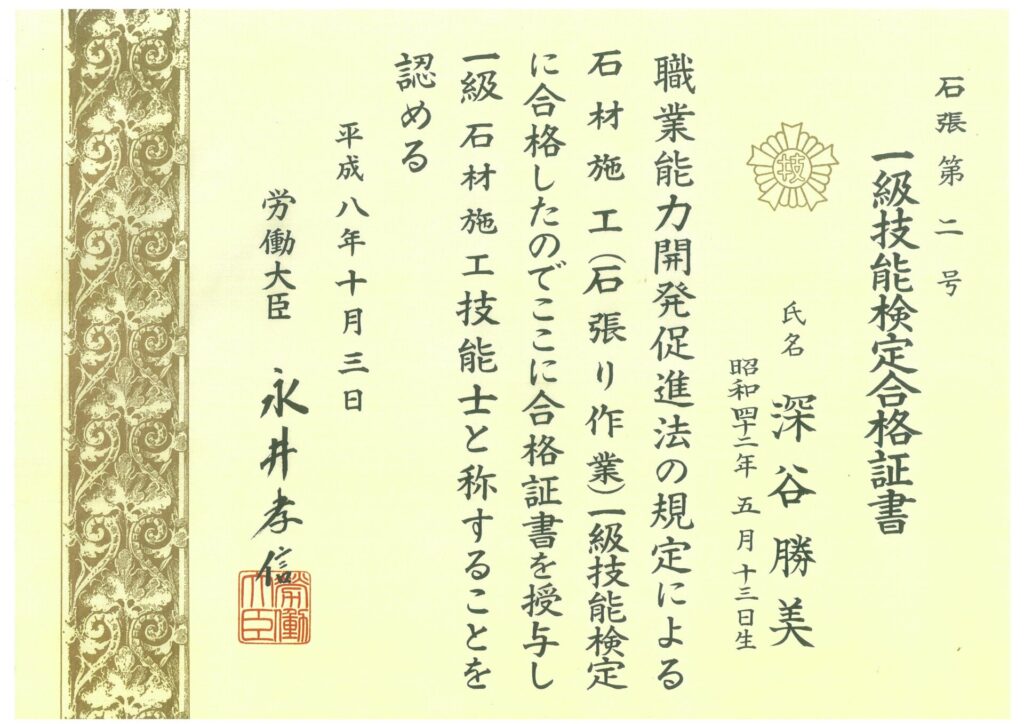 石張第二号
一級技能検定合格証書
技
氏名 深谷勝美
昭和四十二年五月十三日生
職業能力開発促進法の規定による
石材施工(石張り作業)一級技能検定
に合格したのでここに合格証書を授与し
一級石材施工技能士と称することを
認める
平成八年十月三日
労働大臣 永井孝信
労働大臣